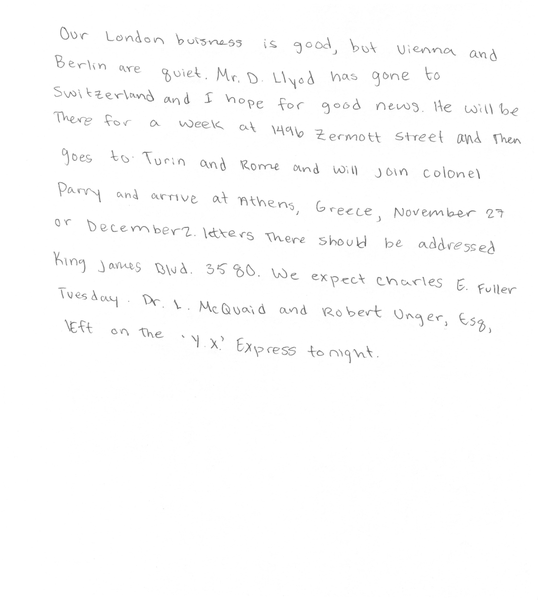 Our London buisness is good, but Vienna and
Berlin are quiet. Mr. D. Llyod has gone to
Switzerland and I hope for good news. He will be
There for a week at 1496 Zermott street and Then
goes to Turin and Rome and will join colonel
Parry and arrive at Athens, Greece, November 27
or December 2. letters There should be addressed
King James Blvd. 3580. We expect Charles E. Fuller
Tuesday. Dr. L. McQuaid and Robert Unger, Esq,
lEft on the 'Y.X.' Express tonight.